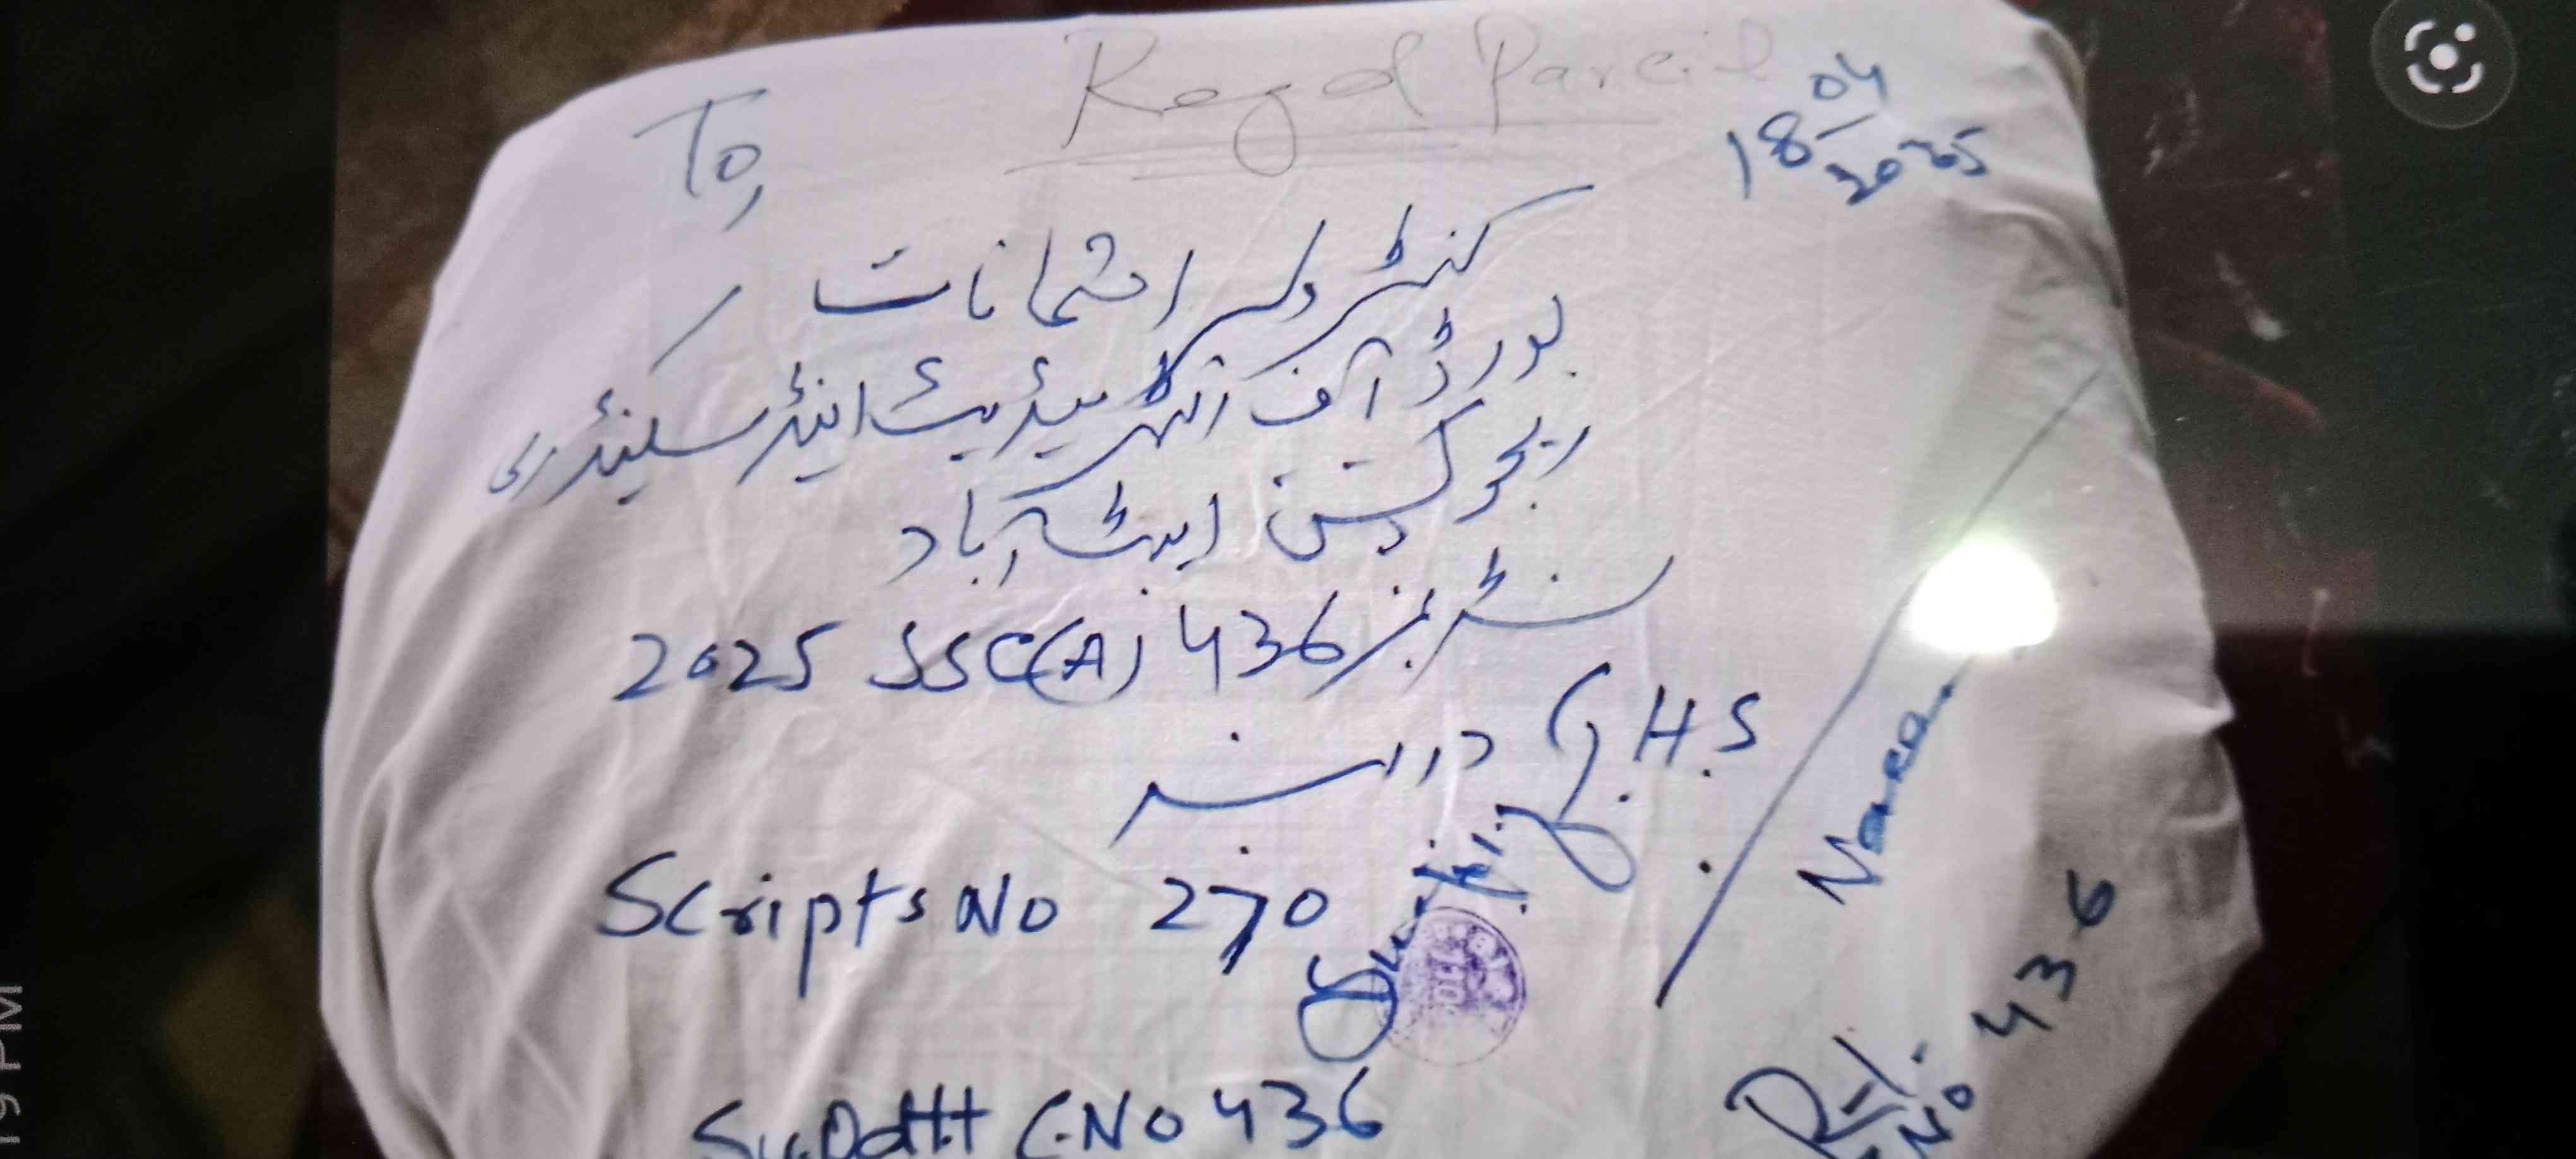 Regd Parcel
To,
18 04/2025
کنٹرولر امتحانات
بورڈ آف انٹرمیڈیٹ اینڈ سیکنڈری
ایجوکیشن ایبٹ آباد
سنٹر نمبر 436 SSC(A) 2025
G.H.S
Scripts No 270
C.No 436
No 436
19 PM